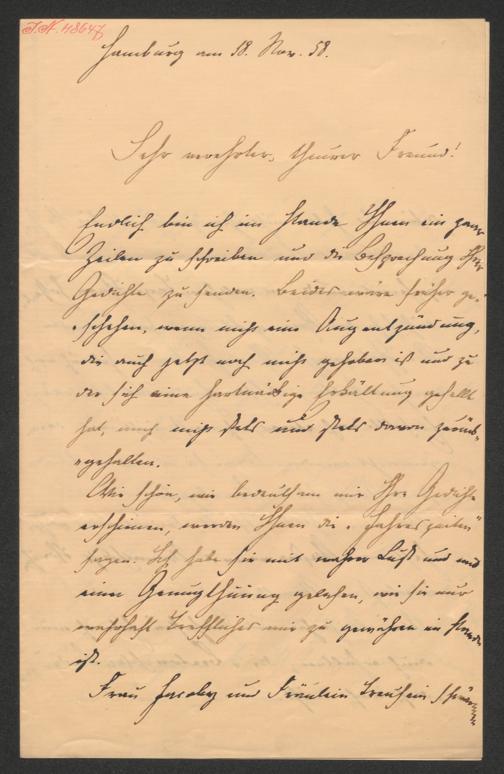 J.N. 48647
Hamburg am 18. Nov. 58.
Sehr verehrter, theurer Freund!
Endlich bin ich im stande Ihnen ein paar
Zeilen zu schreiben und die Besprechung Ihrer
Gedichte zu senden. Beides wäre früher ge-
schehen, wenn nicht eine Augentzündung,
die auch jetzt noch nicht gehoben ist und zu
der sich eine hartnäckige Erkältung gesellt
hat, mich stets und stets davon zurück-
gehalten.
Wie schön, wie bedeutsam mir Ihre Gedichte
erschienen, werden Ihnen die „Jahreszeiten"
sagen. Ich habe sie mit wahrer Lust und mit
einer Genugthuung gelesen, wie sie nur
wahrhaft Treffliches mir zu gewähren im stande
ist.
Frau Jacoby und Fräulein